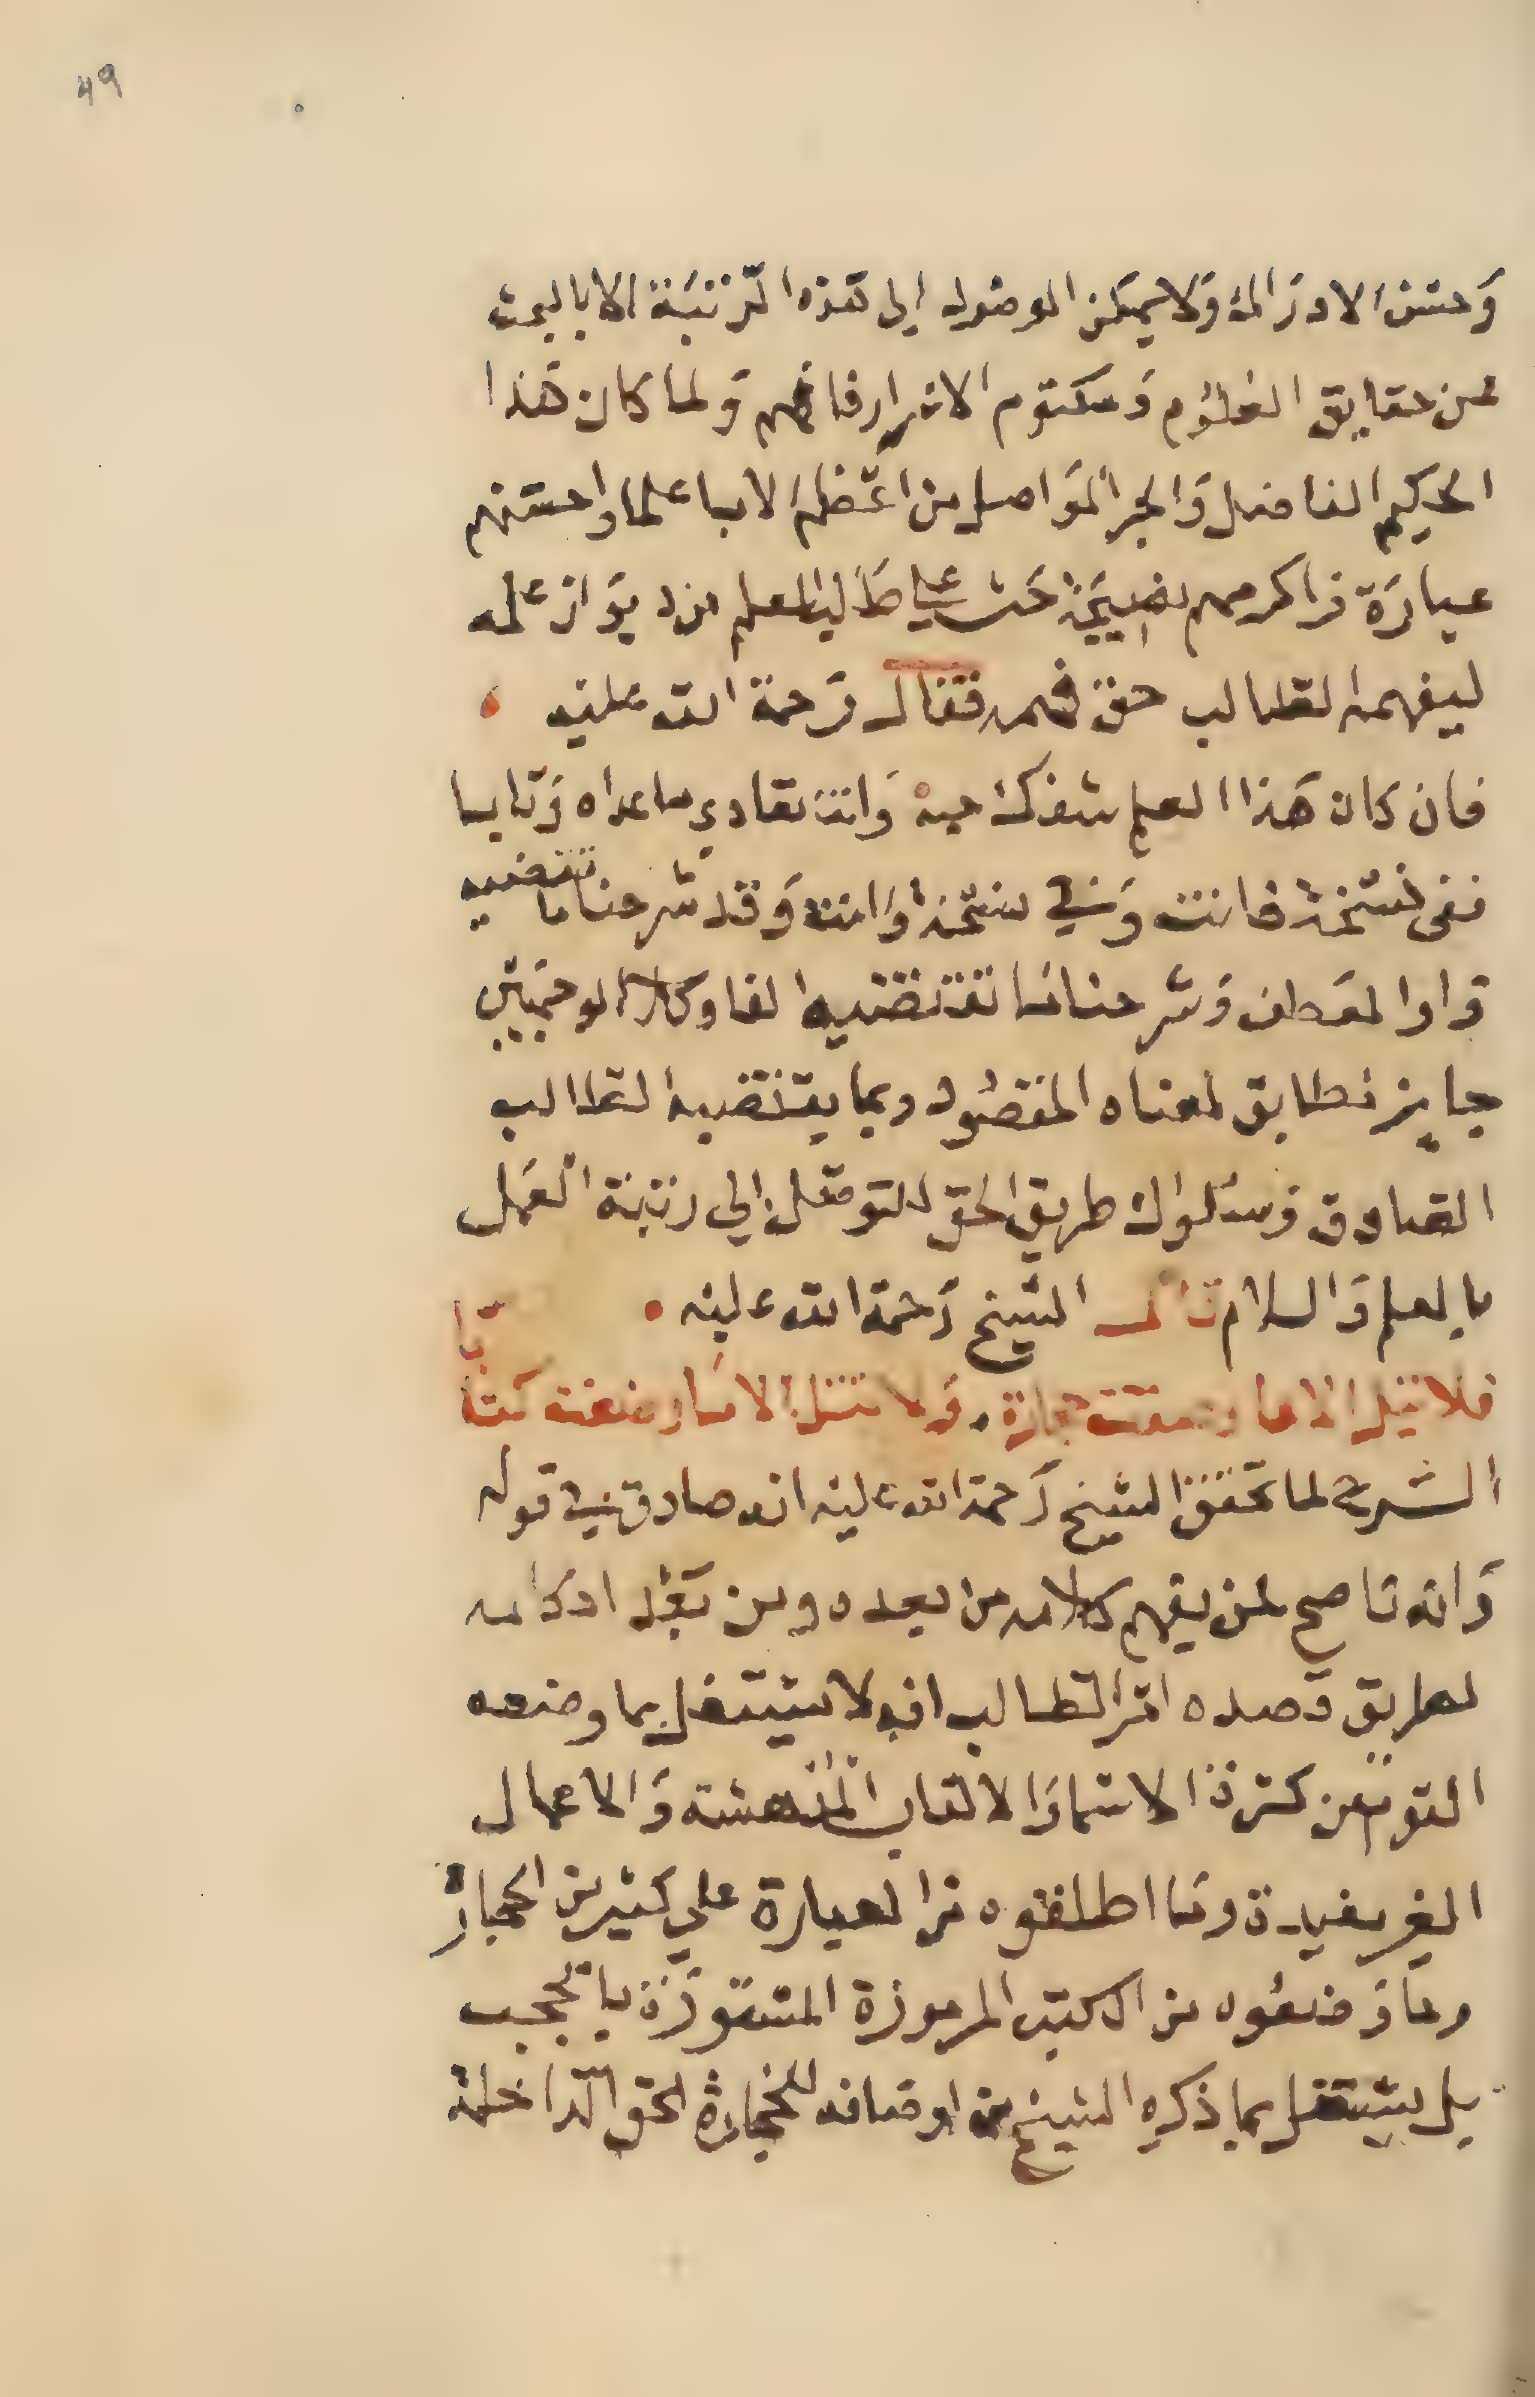 49
وحسن الادراك ولا يمكن الوصول الى هذه الرتبة الا بالبحث
عن حقايق العلوم ومكتوم الاسرار فافهم ولما كان هذا
الحكيم الفاضل والحبر الواصل من اعظم الادبا علما واحسنهم
عبارة واكرمهم نصيحة حث على طالب العلم من ديوان علمه
ليفهم الطالب حق فهمه فقال رحمة الله عليه
فان كان هذا العلم شفك حبه وانت تعادي ما عداه وتابيا
ففي نسخة فانت وفي نسخة وانت وقد شرحنا ما تقتضيه
واو العطف وشرحنا ما تقتضيه الفا وكلا الوجهين
جايز نطابق لمعناه المقصود وبما يقتضيه الطالب
الصادق في سلوك طريق الحق للتوصل الى رتبة العمل
بالعلم والسلام قال الشيخ رحمة الله عليه
فلا تنل الا ما وصفت حجارة ولا تتل الا ما وضعت كتابا
الشرح لما تحقق الشيخ رحمة الله عليه انه صادق في قوله
وانه ناصح لمن يفهم كلامه من بعده ومن بعد ادكامه
لطريق قصده امر الطالب انه لا يشتغل بما وضعه
القوم من كثرة الاسما والالقاب المدهشة والاعمال
الغير مفيدة وما اطلقوه من العبارة على كثير من الحجارة
وما وضعوه من الكتب المرموزة المستورة بالحجب
بل يشتغل بما ذكره الشيخ من اوصافه للحجارة الحق الداخلة